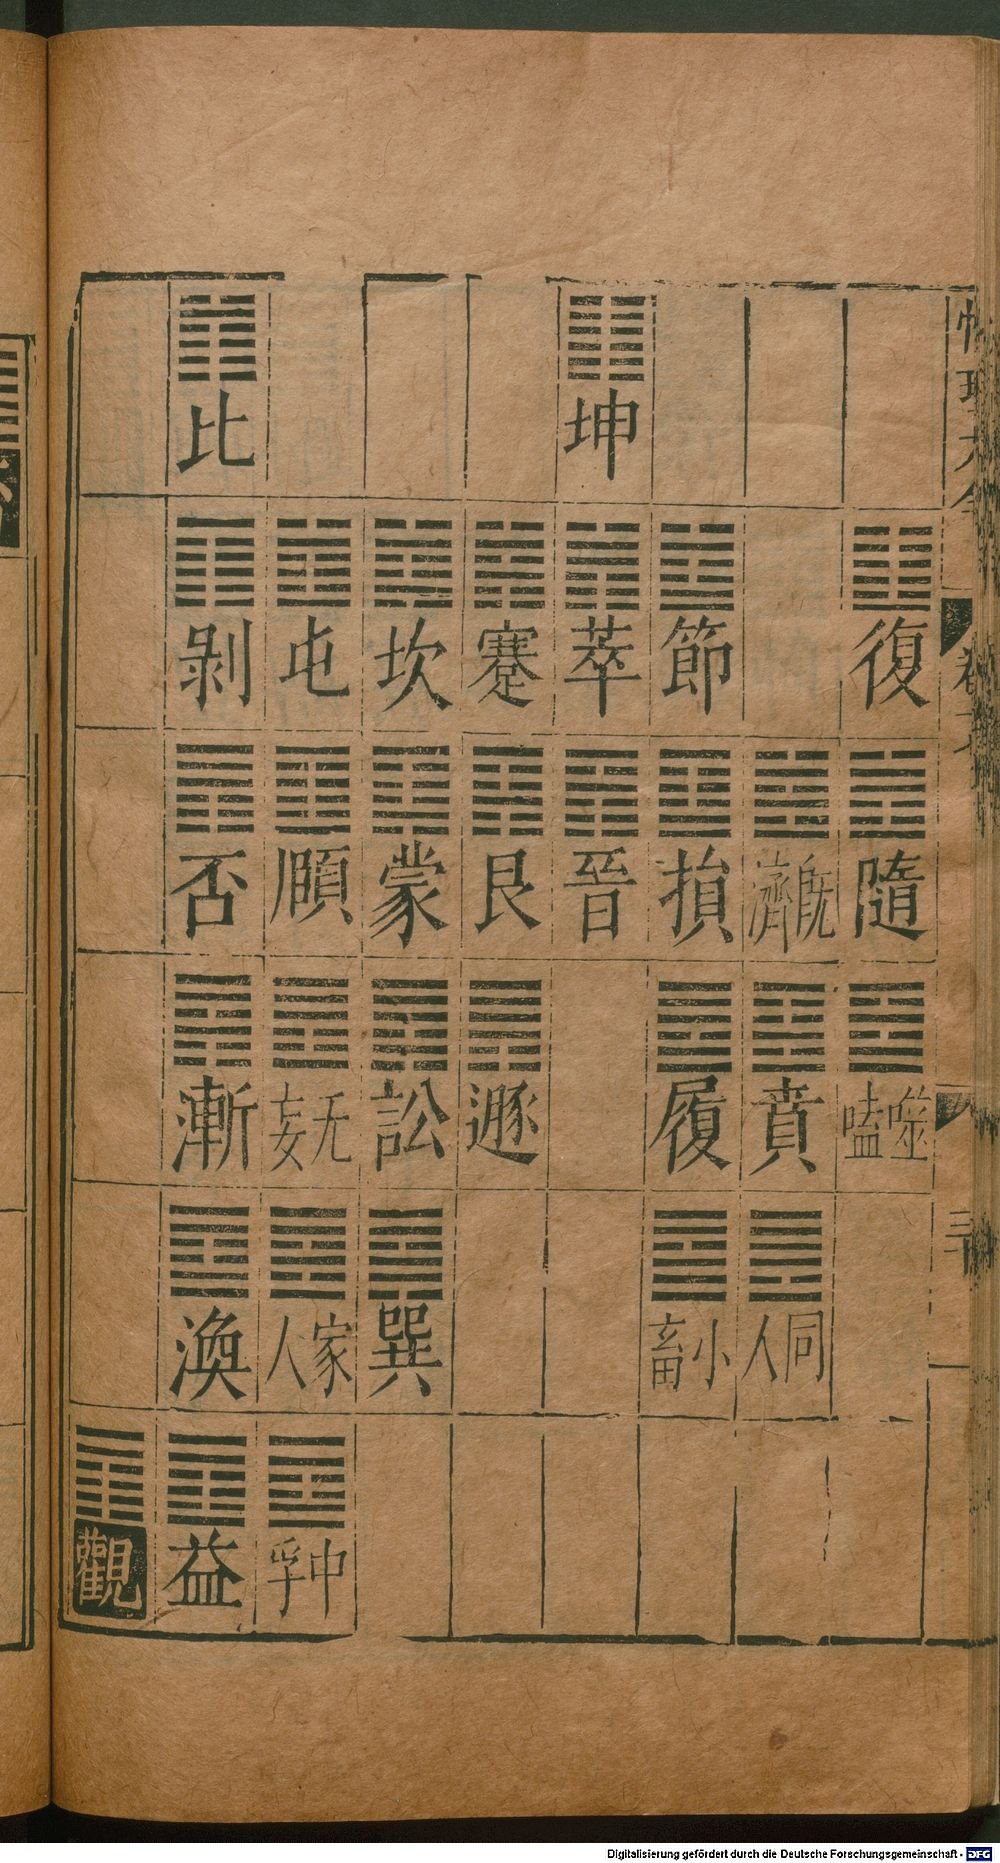 性理大全
三十
復 隨 噬嗑
既濟 賁 同人
節 損 履 小畜
坤 萃 晉
蹇 艮 遯
坎 蒙 訟 巽
屯 頤 无妄 家人 中孚
比 剝 否 漸 渙 益
觀
Digitalisierung gefördert durch die Deutsche Forschungsgemeinschaft - DFG